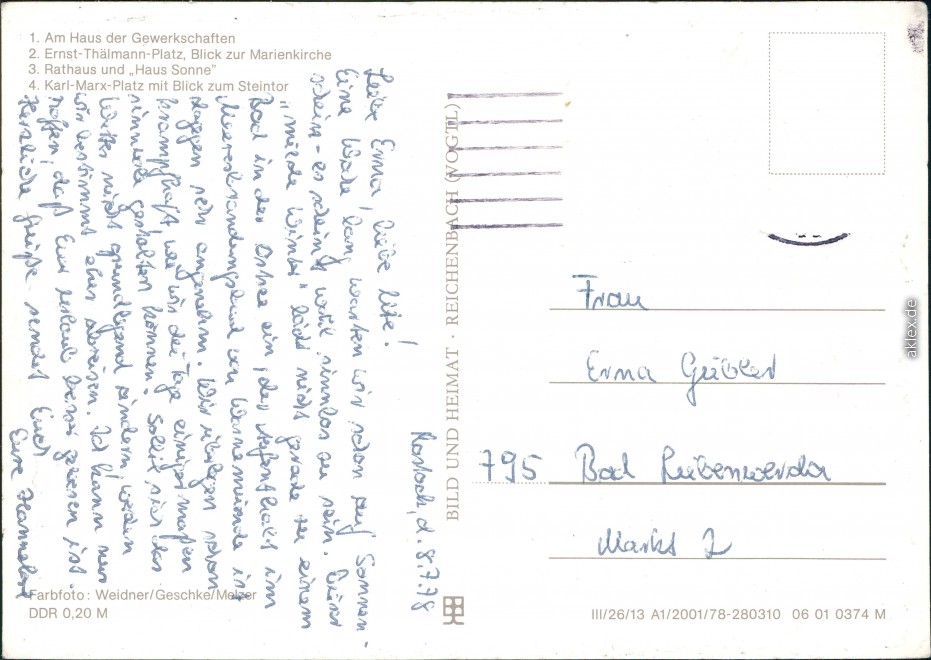 1. Am Haus der Gewerkschaften
2. Ernst-Thälmann-Platz, Blick zur Marienkirche
3. Rathaus und „Haus Sonne"
4. Karl-Marx-Platz mit Blick zum Steintor
Rostock, d. 8.7.78
Liebe Erna, liebe
Eine Woche lang warten wir schon auf Sonnen-
schein - es scheint wohl sinnlos zu sein. Unser
"milde Winter" lädt nicht gerade zu einem
Bad in der Ostsee ein, der Aufenthalt im
Meeresbrandungsbad von Warnemünde ist
dagegen sehr angenehm. Wir überlegen schon
krampfhaft, wie wir die Tage einigermaßen
sinnvoll gestalten können. Sollte sich das
Wetter nicht grundlegend ändern, werden
wir bestimmt eher abreisen. Ich kann nur
hoffen, daß Euer Urlaub besser gewesen ist.
Herzliche Grüße sendet Euch
Eure Hannelore
BILD UND HEIMAT · REICHENBACH (VOGTL)
Frau
Erna Gübler
795 Bad Liebenwerda
Markt 2
Farbfoto: Weidner/Geschke/Melzer
DDR 0,20 M
III/26/13 A1/2001/78-280310 06 01 0374 M
aklex.de